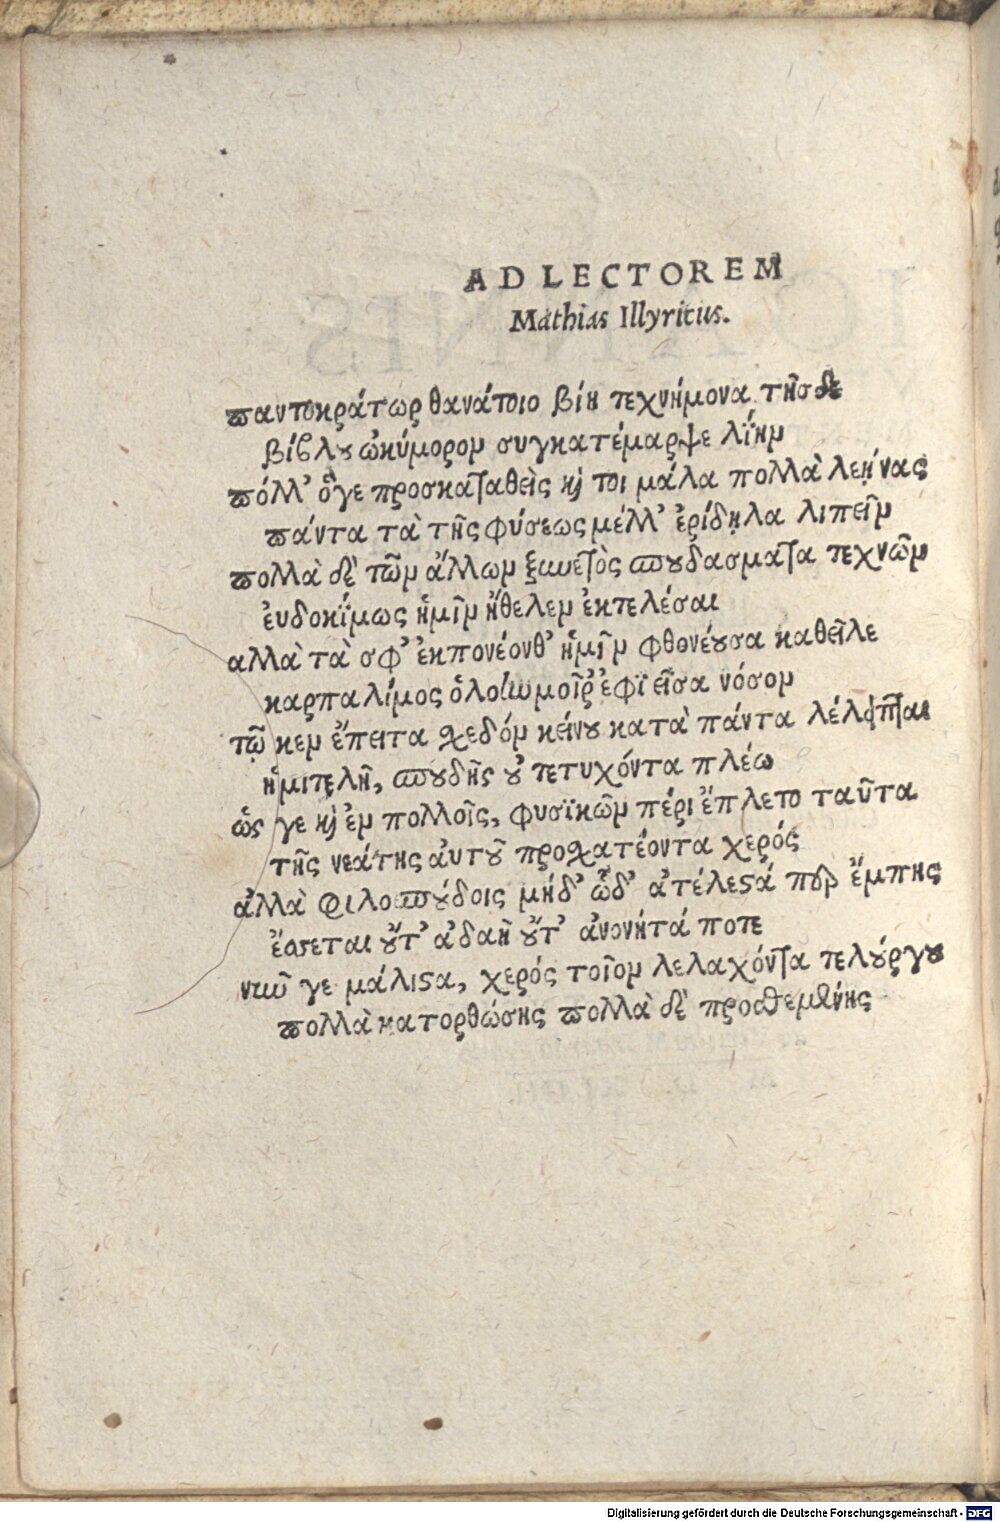 AD LECTOREM
Mathias Illyricus.
παντοκράτωρ θανάτοιο βίη τεχνήμονα τῆσδε
βίβλου ὠκύμορον συγκατέμαρψε λΐην
πόλλ' ὅγε προσκαταθεὶς καί τοι μάλα πολλὰ λεῄνας
πάντα τὰ τῆς φύσεως μέλλ' ἐρίδηλα λιπεῖν
πολλὰ δὲ τῶν ἄλλων ξυνετὸς σπουδάσματα τεχνῶν
ἐυδοκΐμως ἡμῖν ἤθελεν ἐκτελέσαι
αλλὰ τὰ σφ' ἐκπονέονθ' ἡμῖν φθονέουσα καθεῖλε
καρπαλίμος ὀλοὴν μοῖρ' ἐφϊεῖσα νόσον
τῷ κεν ἔπειτα σχεδόν κείνου κατὰ πάντα
ἡμιτελῆ, σπουδῆς οὐ τετυχόντα πλέω
ὥς γε καὶ ἐν πολλοῖς, φυσϊκῶν πέρι ἔπλετο ταῦτα
τῆς νεάτης ἀυτοῦ προσχατέοντα χερός
ἀλλὰ φιλοσπούδοις μήδ' ὧδ' ἀτέλεστά περ ἔμπης
ἔσσεται οὔτ' ἀδαῆ οὔτ' ἀνονήτά ποτε
νῦν γε μάλιστα, χερός τοῖον λελαχόντα τελούργου
πολλὰ κατορθώσης πολλὰ δὲ προσθεμένης
Digitalisierung gefördert durch die Deutsche Forschungsgemeinschaft - DFG